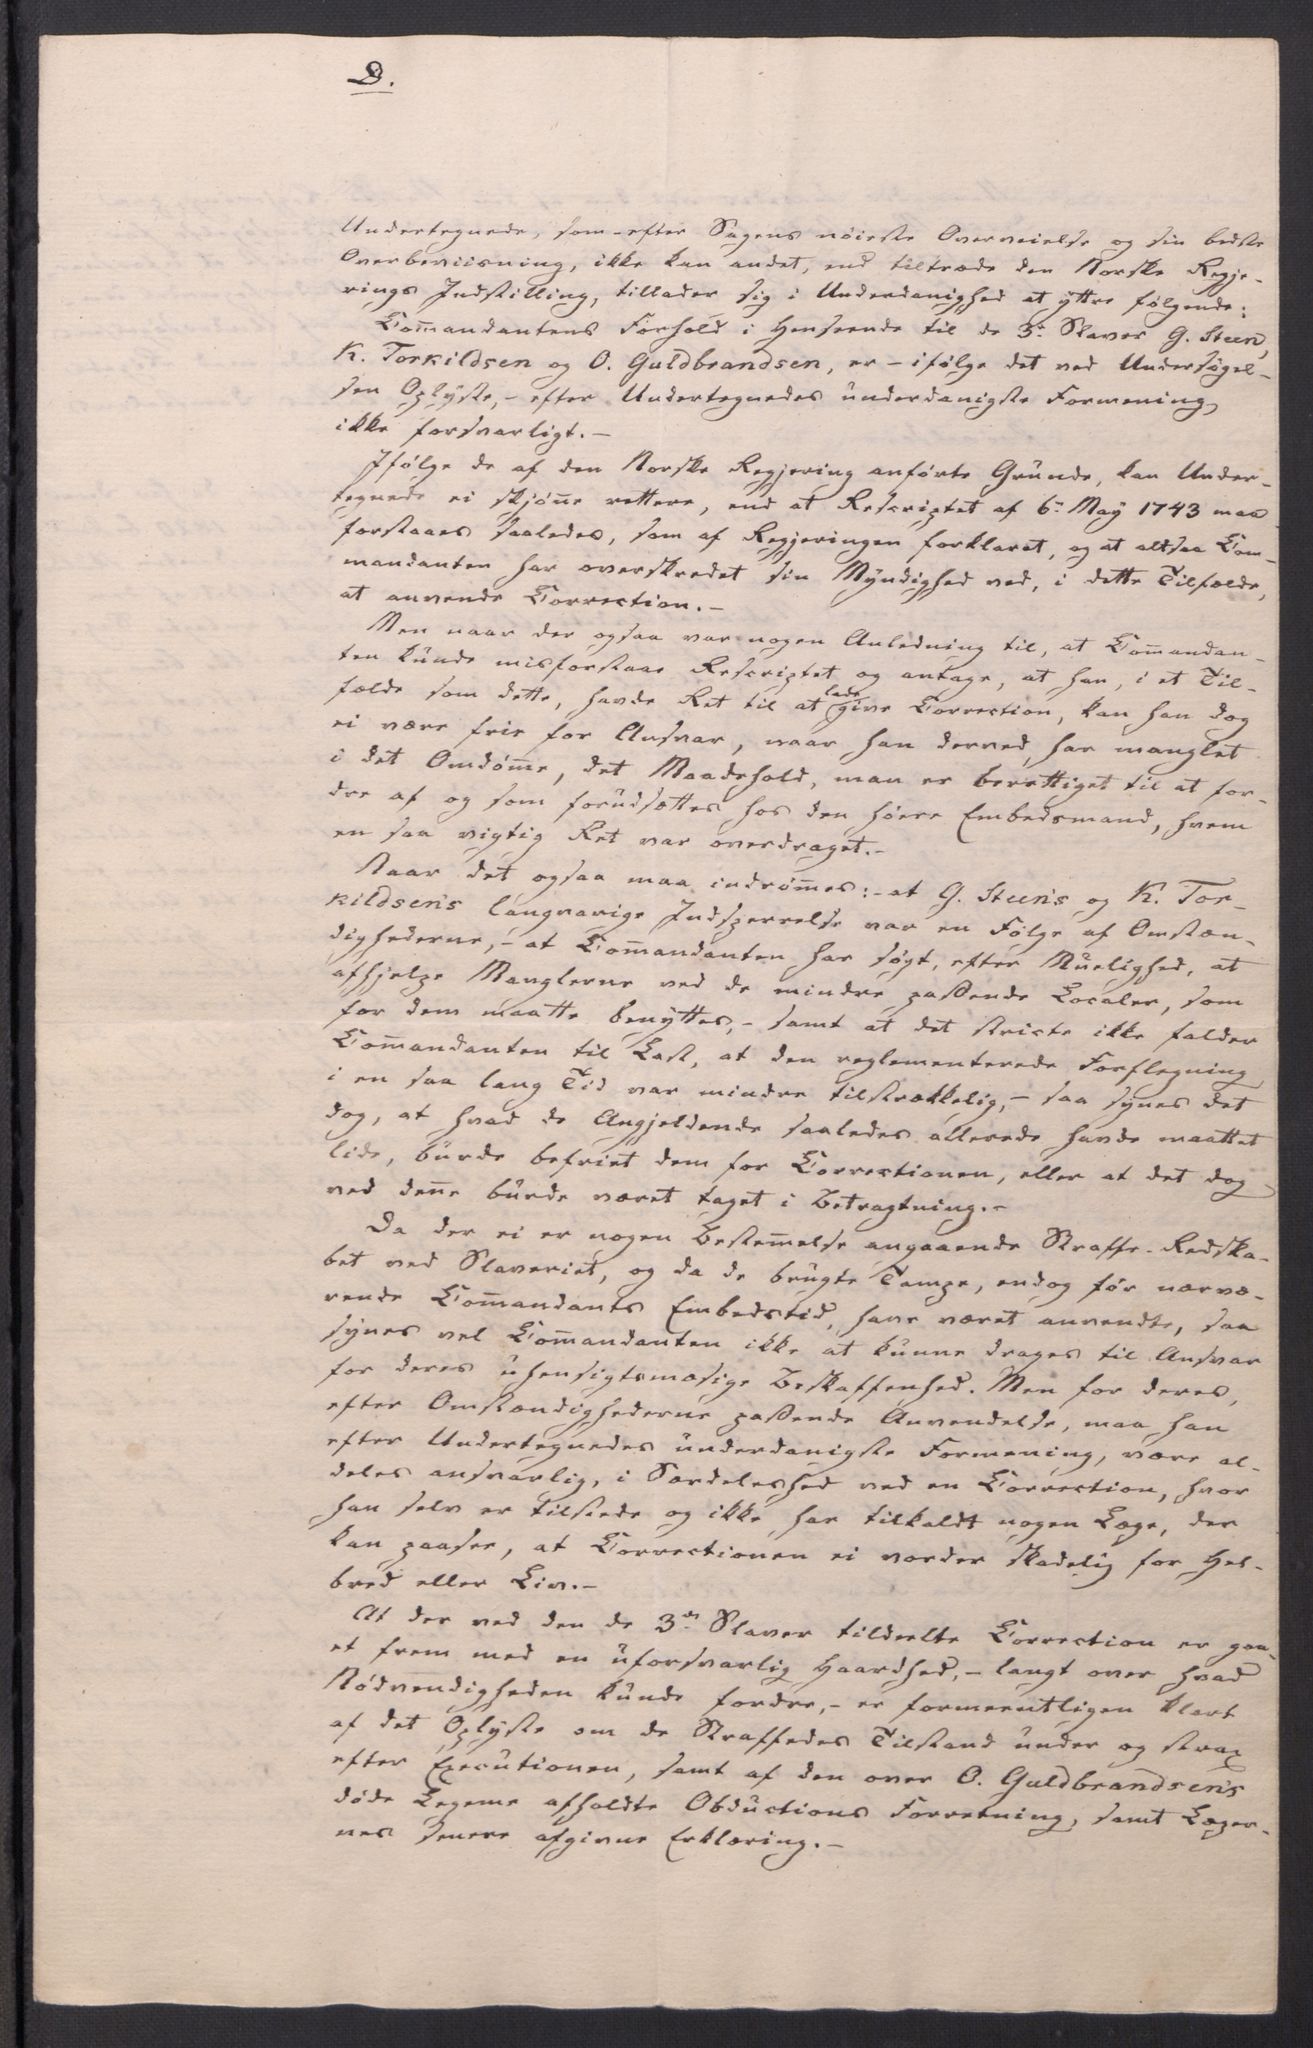 D.
Undertegnede, som efter Sagens nöieste Overveielse og sin bedste
Overbeviisning, ikke kan andet, end tiltræde den Norske Regje-
rings Indstilling, tillader sig i Underdanighed at yttre følgende:
Com̄andantens Forhold i Henseende til de 3de Slaver G. Steen,
K. Torkildsen og O. Guldbrandsen, er – ifölge det ved Undersögel-
sen Oplyste, – efter Undertegnedes underdanigste Formening,
ikke forsvarligt. –
Ifölge de af den Norske Regjering anförte Grunde, kan Under-
tegnede ei skjön̄e rettere, end at Rescriptet af 6te May 1743 maa
forstaaes saaledes, som af Regjeringen forklaret, og at altsaa Com-
mandanten har overskredet sin Myndighed ved, i dette Tilfælde,
at anvende Correction. –
Men naar der ogsaa var nogen Anledning til, at Com̄andan-
ten kunde misforstaae Rescriptet og antage, at han, i et Til-
fælde som dette, havde Ret til at lade give Correction, kan han dog
ei være frie for Ansvar, naar han derved har manglet
i det Omdöm̄e, det Maadehold, man er berettiget til at for-
dre af og som forudsættes hos den höiere Embedsmand, hvem
en saa vigtig Ret var overdraget. –
Naar det ogsaa maa indröm̄es: – at G. Steen's og K. Tor-
kildsen's langvarige Indsperrelse var en Fölge af Omstæn-
dighederne, – at Com̄andanten har sögt, efter Muelighed, at
afhjelpe Manglerne ved de mindre passende Localer, som
for dem maatte benyttes, – samt at det stricte ikke falder
Com̄andanten til Last, at den reglementerede Forflegning
i en saa lang Tid var mindre tilstrækkelig, – saa synes det
dog, at hvad de Angjeldende saaledes allerede havde maattet
lide, burde befriet dem for Correctionen, eller at det dog
ved den̄e burde været taget i Betragtning. –
Da der ei er nogen Bestem̄else angaaende Straffe-Redska-
bet ved Slaveriet, og da de brugte Tampe, endog för nærvæ-
rende Com̄andants Embedstid, have været anvendte, saa
synes vel Com̄andanten ikke at kunne drages til Ansvar
for deres uhensigtsmæsige Beskaffenhed. Men for deres,
efter Omstændighederne passende Anvendelse, maa han
efter Undertegnedes underdanigste Formening, være al-
deles ansvarlig, i Særdeleshed ved en Correction, hvor
han selv er tilstede og ikke har tilkaldt nogen Læge, der
kan paasee, at Correctionen ei vorder skadelig for Hel-
bred eller Liv. –
At der ved den de 3de Slaver tildeelte Correction er gaa-
et frem med en uforsvarlig Haardhed, – langt over hvad
Nödvendigheden kunde fordre, – er formeentligen klart
af det Oplyste om de Straffedes Tilstand under og strax
efter Executionen, samt af den over O. Guldbrandsen's
döde Legeme afholdte Obductions Forretning, samt Læger-
nes senere afgivne Erklæring. –